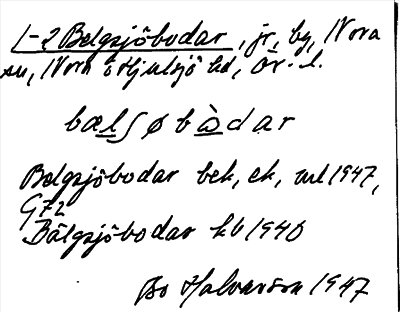 1-2 Belgsjöbodar, jr, by, Nora
sn, Nora o Hjulsjö hd, Ör. l.
bælʃøbòdar
Belgsjöbodar bek, ek, ml 1947,
G72
Bälgsjöbodar kb 1940
Bo Halvarson 1947